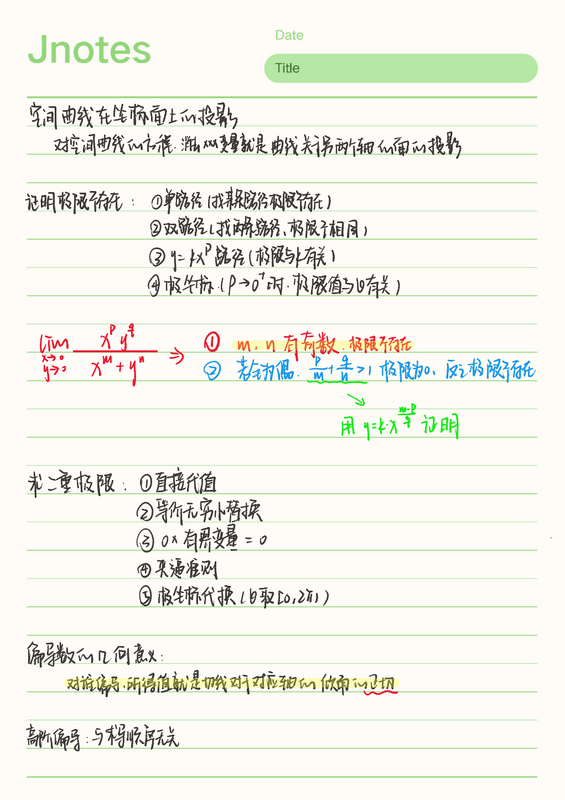 Jnotes
Date
Title
空间曲线在坐标面上的投影
对空间曲线的方程.消去x变量就是曲线关于另两个轴的面的投影
证明极限不存在: ①单路径(找某路径极限不存在)
②双路径(找两条路径,极限不相同)
③ y=kx^p 路径(极限与k有关)
④极坐标(ρ→0⁺时.极限值与θ有关)
lim x→0 y→0 x^p y^q / (x^m + y^n) ⇒ ① m.n 有奇数.极限不存在
② 若全为偶. p/m + q/n > 1 极限为0, 反之极限不存在
用 y=k·x^((m-p)/q) 证明
求二重极限: ①直接代值
②等价无穷小替换
③ 0×有界变量=0
④夹逼准则
⑤极坐标代换(θ取[0,2π])
偏导数的几何意义:
对谁偏导.所得值就是切线对于对应轴的倾角的正切
高阶偏导:与求导顺序无关